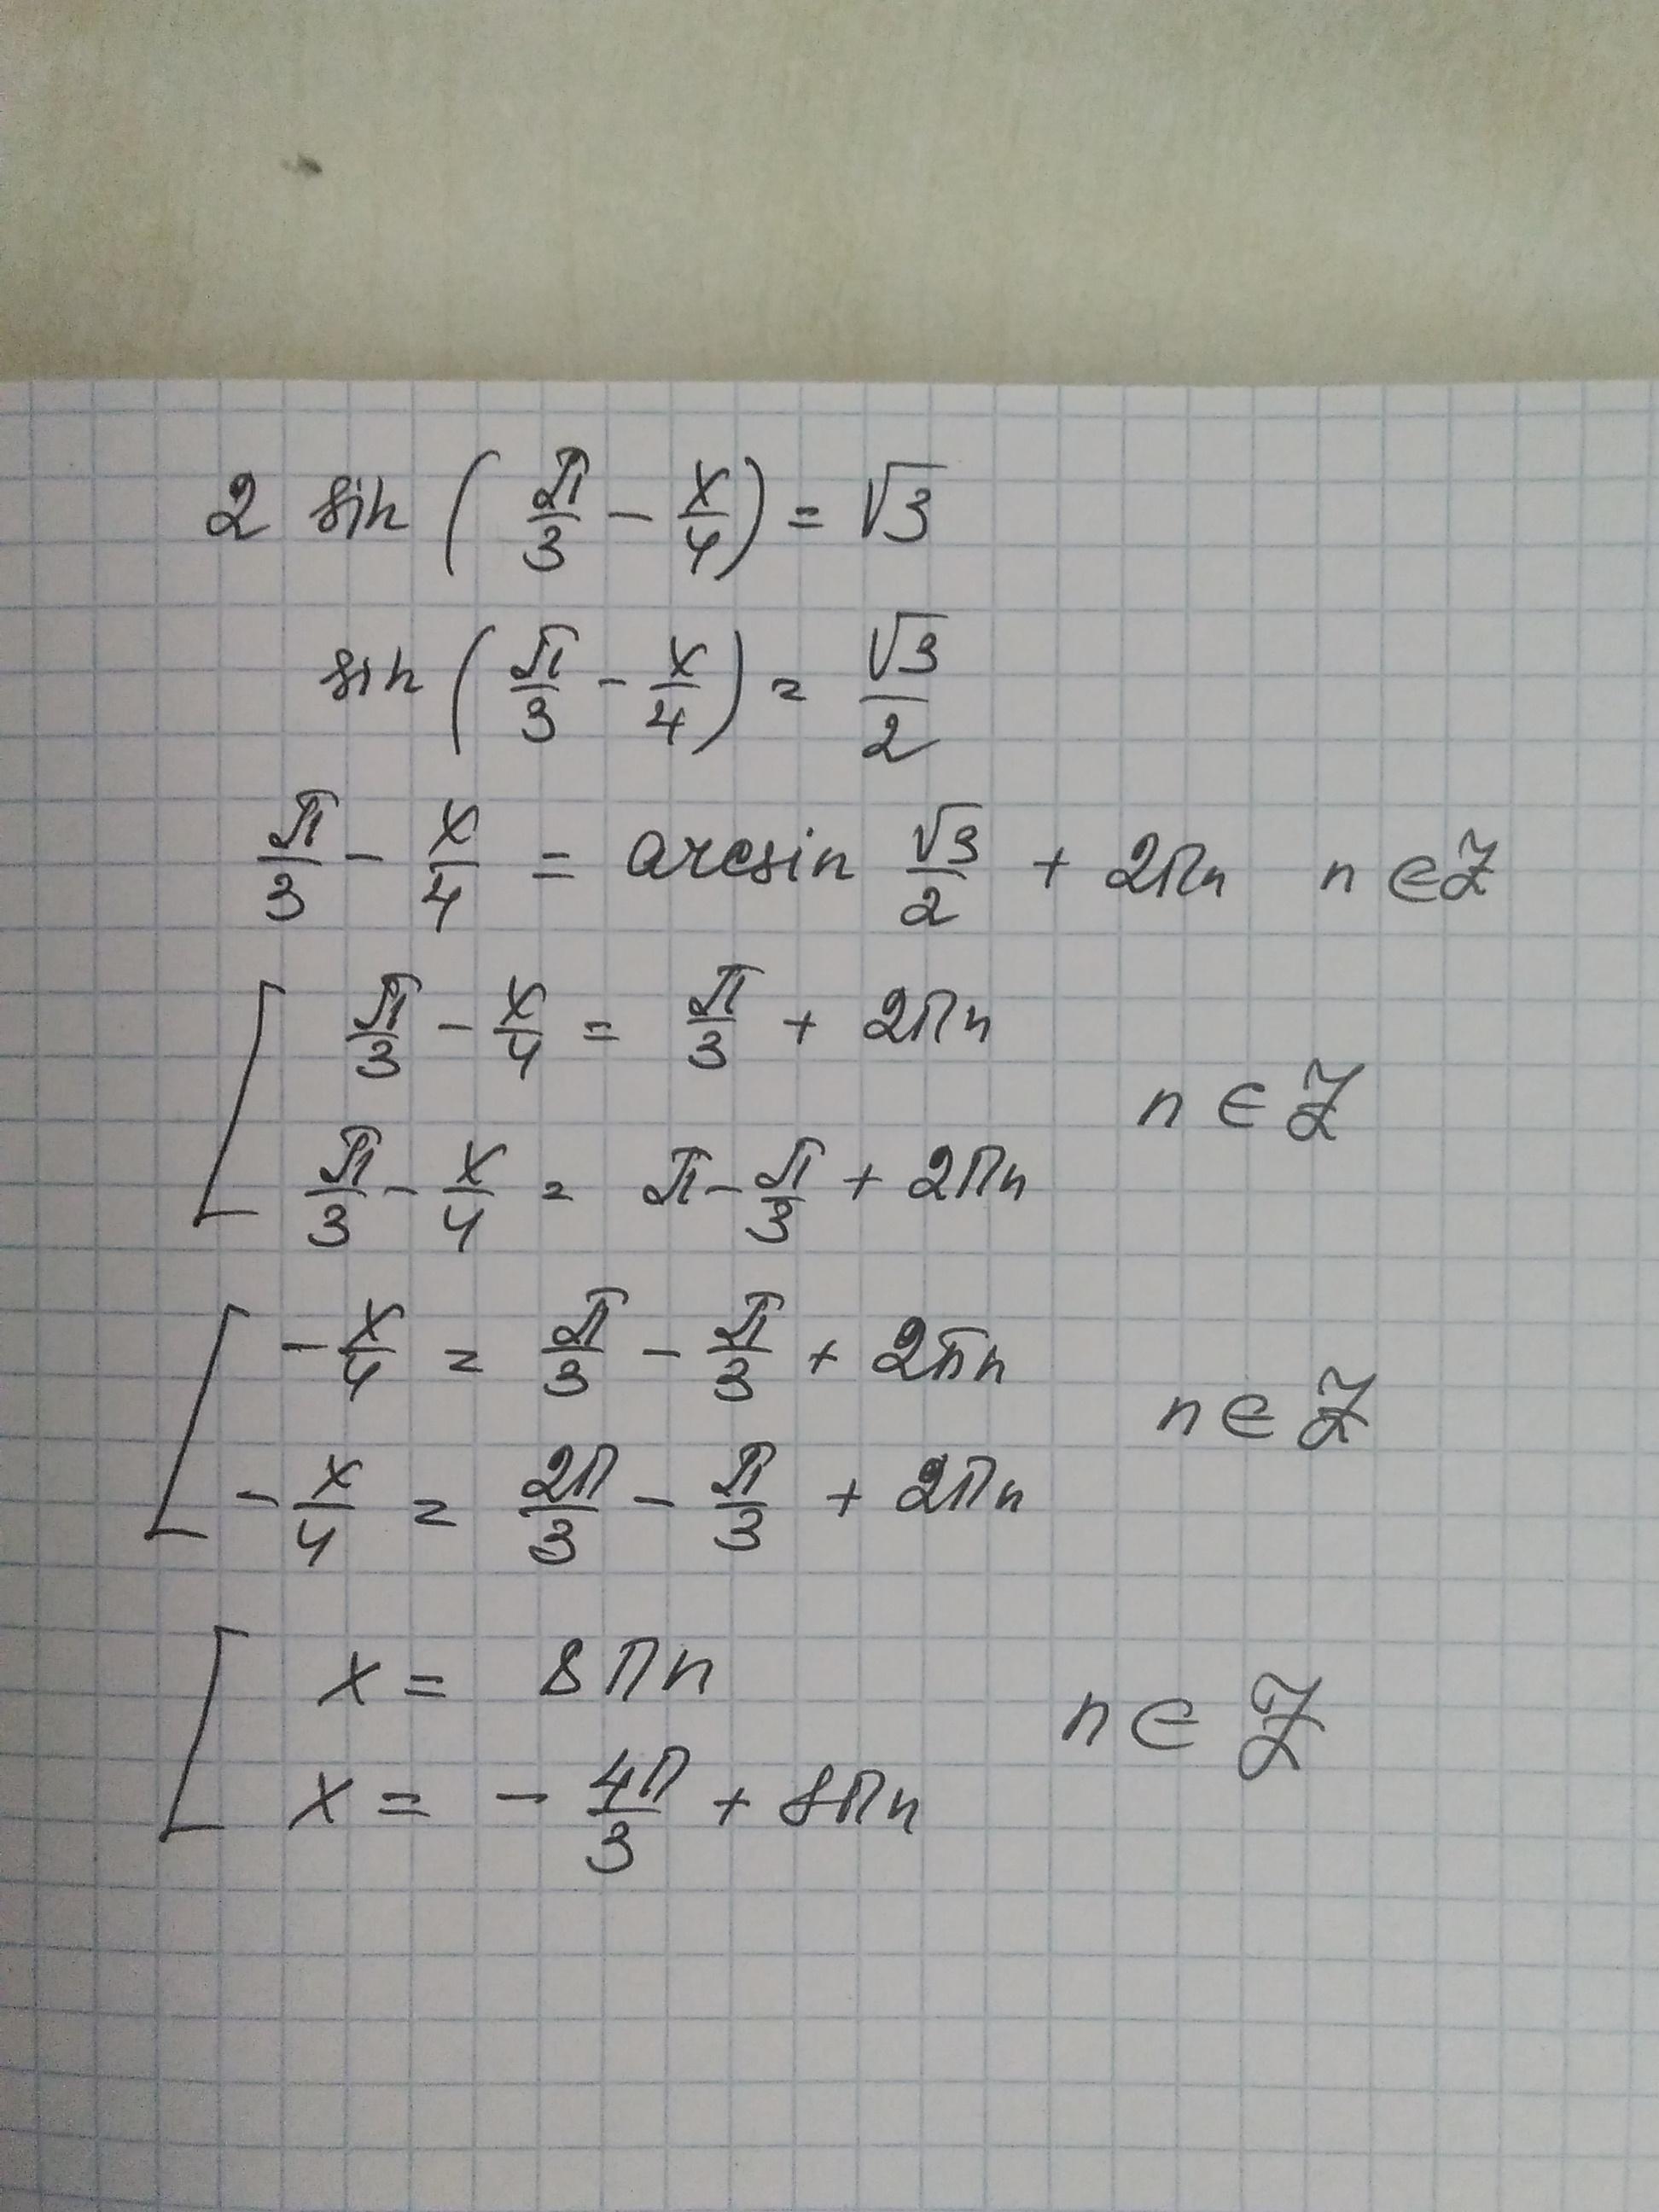 2 sin (π/3 − x/4) = √3
sin (π/3 − x/4) = √3/2
π/3 − x/4 = arcsin √3/2 + 2πn n ∈ Z
[ π/3 − x/4 = π/3 + 2πn
π/3 − x/4 = π − π/3 + 2πn n ∈ Z
[ − x/4 = π/3 − π/3 + 2πn
− x/4 = 2π/3 − π/3 + 2πn n ∈ Z
[ x = 8πn
x = − 4π/3 + 8πn n ∈ Z